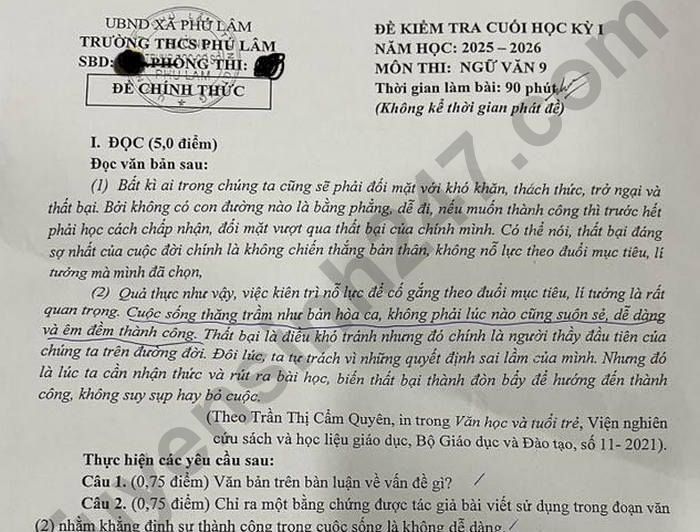 UBND XÃ PHÚ LÂM
TRƯỜNG THCS PHÚ LÂM
SBD: PHÒNG THI:
ĐỀ CHÍNH THỨC
ĐỀ KIỂM TRA CUỐI HỌC KỲ I
NĂM HỌC: 2025 – 2026
MÔN THI: NGỮ VĂN 9
Thời gian làm bài: 90 phút
(Không kể thời gian phát đề)
I. ĐỌC (5,0 điểm)
Đọc văn bản sau:
(1) Bất kì ai trong chúng ta cũng sẽ phải đối mặt với khó khăn, thách thức, trở ngại và
thất bại. Bởi không có con đường nào là bằng phẳng, dễ đi, nếu muốn thành công thì trước hết
phải học cách chấp nhận, đối mặt vượt qua thất bại của chính mình. Có thể nói, thất bại đáng
sợ nhất của cuộc đời chính là không chiến thắng bản thân, không nỗ lực theo đuổi mục tiêu, lí
tưởng mà mình đã chọn,
(2) Quả thực như vậy, việc kiên trì nỗ lực để cố gắng theo đuổi mục tiêu, lí tưởng là rất
quan trọng. Cuộc sống thăng trầm như bản hòa ca, không phải lúc nào cũng suôn sẻ, dễ dàng
và êm đềm thành công. Thất bại là điều khó tránh nhưng đó chính là người thầy đầu tiên của
chúng ta trên đường đời. Đôi lúc, ta tự trách vì những quyết định sai lầm của mình. Nhưng đó
là lúc ta cần nhận thức và rút ra bài học, biến thất bại thành đòn bẩy để hướng đến thành
công, không suy sụp hay bỏ cuộc.
(Theo Trần Thị Cẩm Quyên, in trong Văn học và tuổi trẻ, Viện nghiên
cứu sách và học liệu giáo dục, Bộ Giáo dục và Đào tạo, số 11- 2021).
Thực hiện các yêu cầu sau:
Câu 1. (0,75 điểm) Văn bản trên bàn luận về vấn đề gì?
Câu 2. (0,75 điểm) Chỉ ra một bằng chứng được tác giả bài viết sử dụng trong đoạn văn
(2) nhằm khẳng định sự thành công trong cuộc sống là không dễ dàng.
tuyensinh247.com